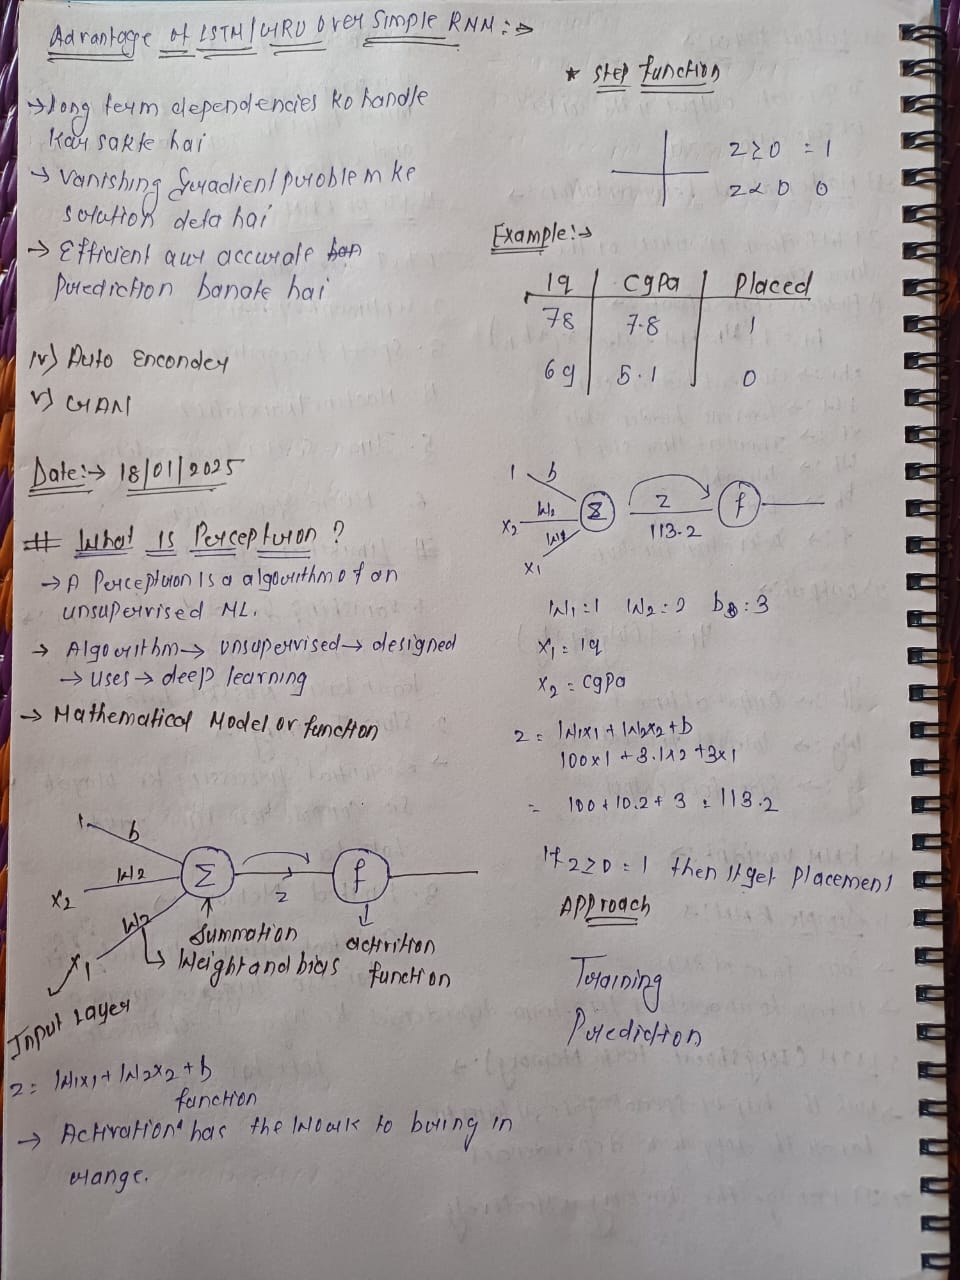 Advantage of LSTM/GRU over Simple RNN :→
→ long term dependencies ko handle
kar sakte hai
→ Vanishing Gradient problem ke
solution deta hai
→ Efficient aur accurate
Prediction banate hai
iv) Auto Enconder
v) GAN
Date:→ 18/01/2025
# What is Perceptron ?
→ A Perceptron is a algorithm of an
unsupervised ML.
→ Algorithm → unsupervised → designed
→ uses → deep learning
→ Mathematical Model or function
1 b
X2 W2 Σ z f
X1 W2
Summation
activition
function
Weight and bias
Input Layer
z = W1x1 + W2x2 + b
function
→ Activation has the work to bring in
range.
* Step function
z≥0 = 1
z<0 0
Example:→
iq | cgpa | Placed
78 7.8 1
69 5.1 0
1 b
X2 W2 Σ z f
113.2
X1 W1
W1 = 1 W2 = 2 b = 3
X1 = iq
X2 = cgpa
z = W1x1 + W2x2 + b
100x1 + 3.1x2 + 3x1
= 100 + 10.2 + 3 = 113.2
If z≥0 = 1 then it get placement
Approach
Training
Prediction